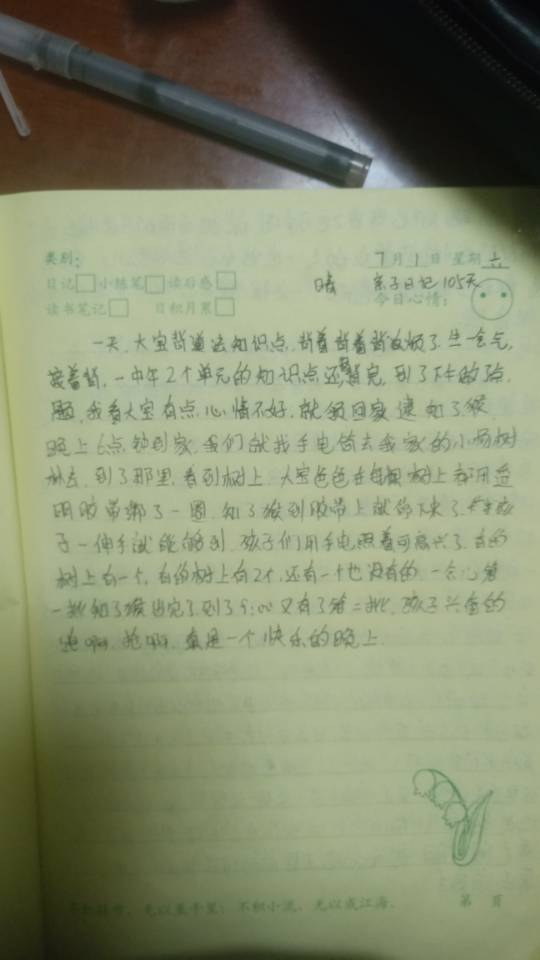 类别：
7月1日 星期六
日记 小练笔 读后感
晴 亲子日记105天
今日心情：
读书笔记 日积月累
一天，大宝背道法知识点，背着背着背改烦了，生会气，
接着背，一中午2个单元的知识点还没背完，到了下午的
题，我看大宝有点心情不好，就领回家逮知了猴
晚上6点钟到家，我们就找手电筒去我家的小杨树
林去，到了那里，看到树上，大宝爸爸在每棵树上都用透
明胶带绑了一圈，知了猴到胶带上就爬不上去了，孩
子一伸手就能够到，孩子们用手电照着可高兴了，有的
树上有一个，有的树上有2个，还有一个也没有的，一会儿第
一批知了猴逮完了，到了9:00又有了第二批，孩子兴奋的
跑啊，跑啊，真是一个快乐的晚上
无以至千里；不积小流，无以成江海。
第 页